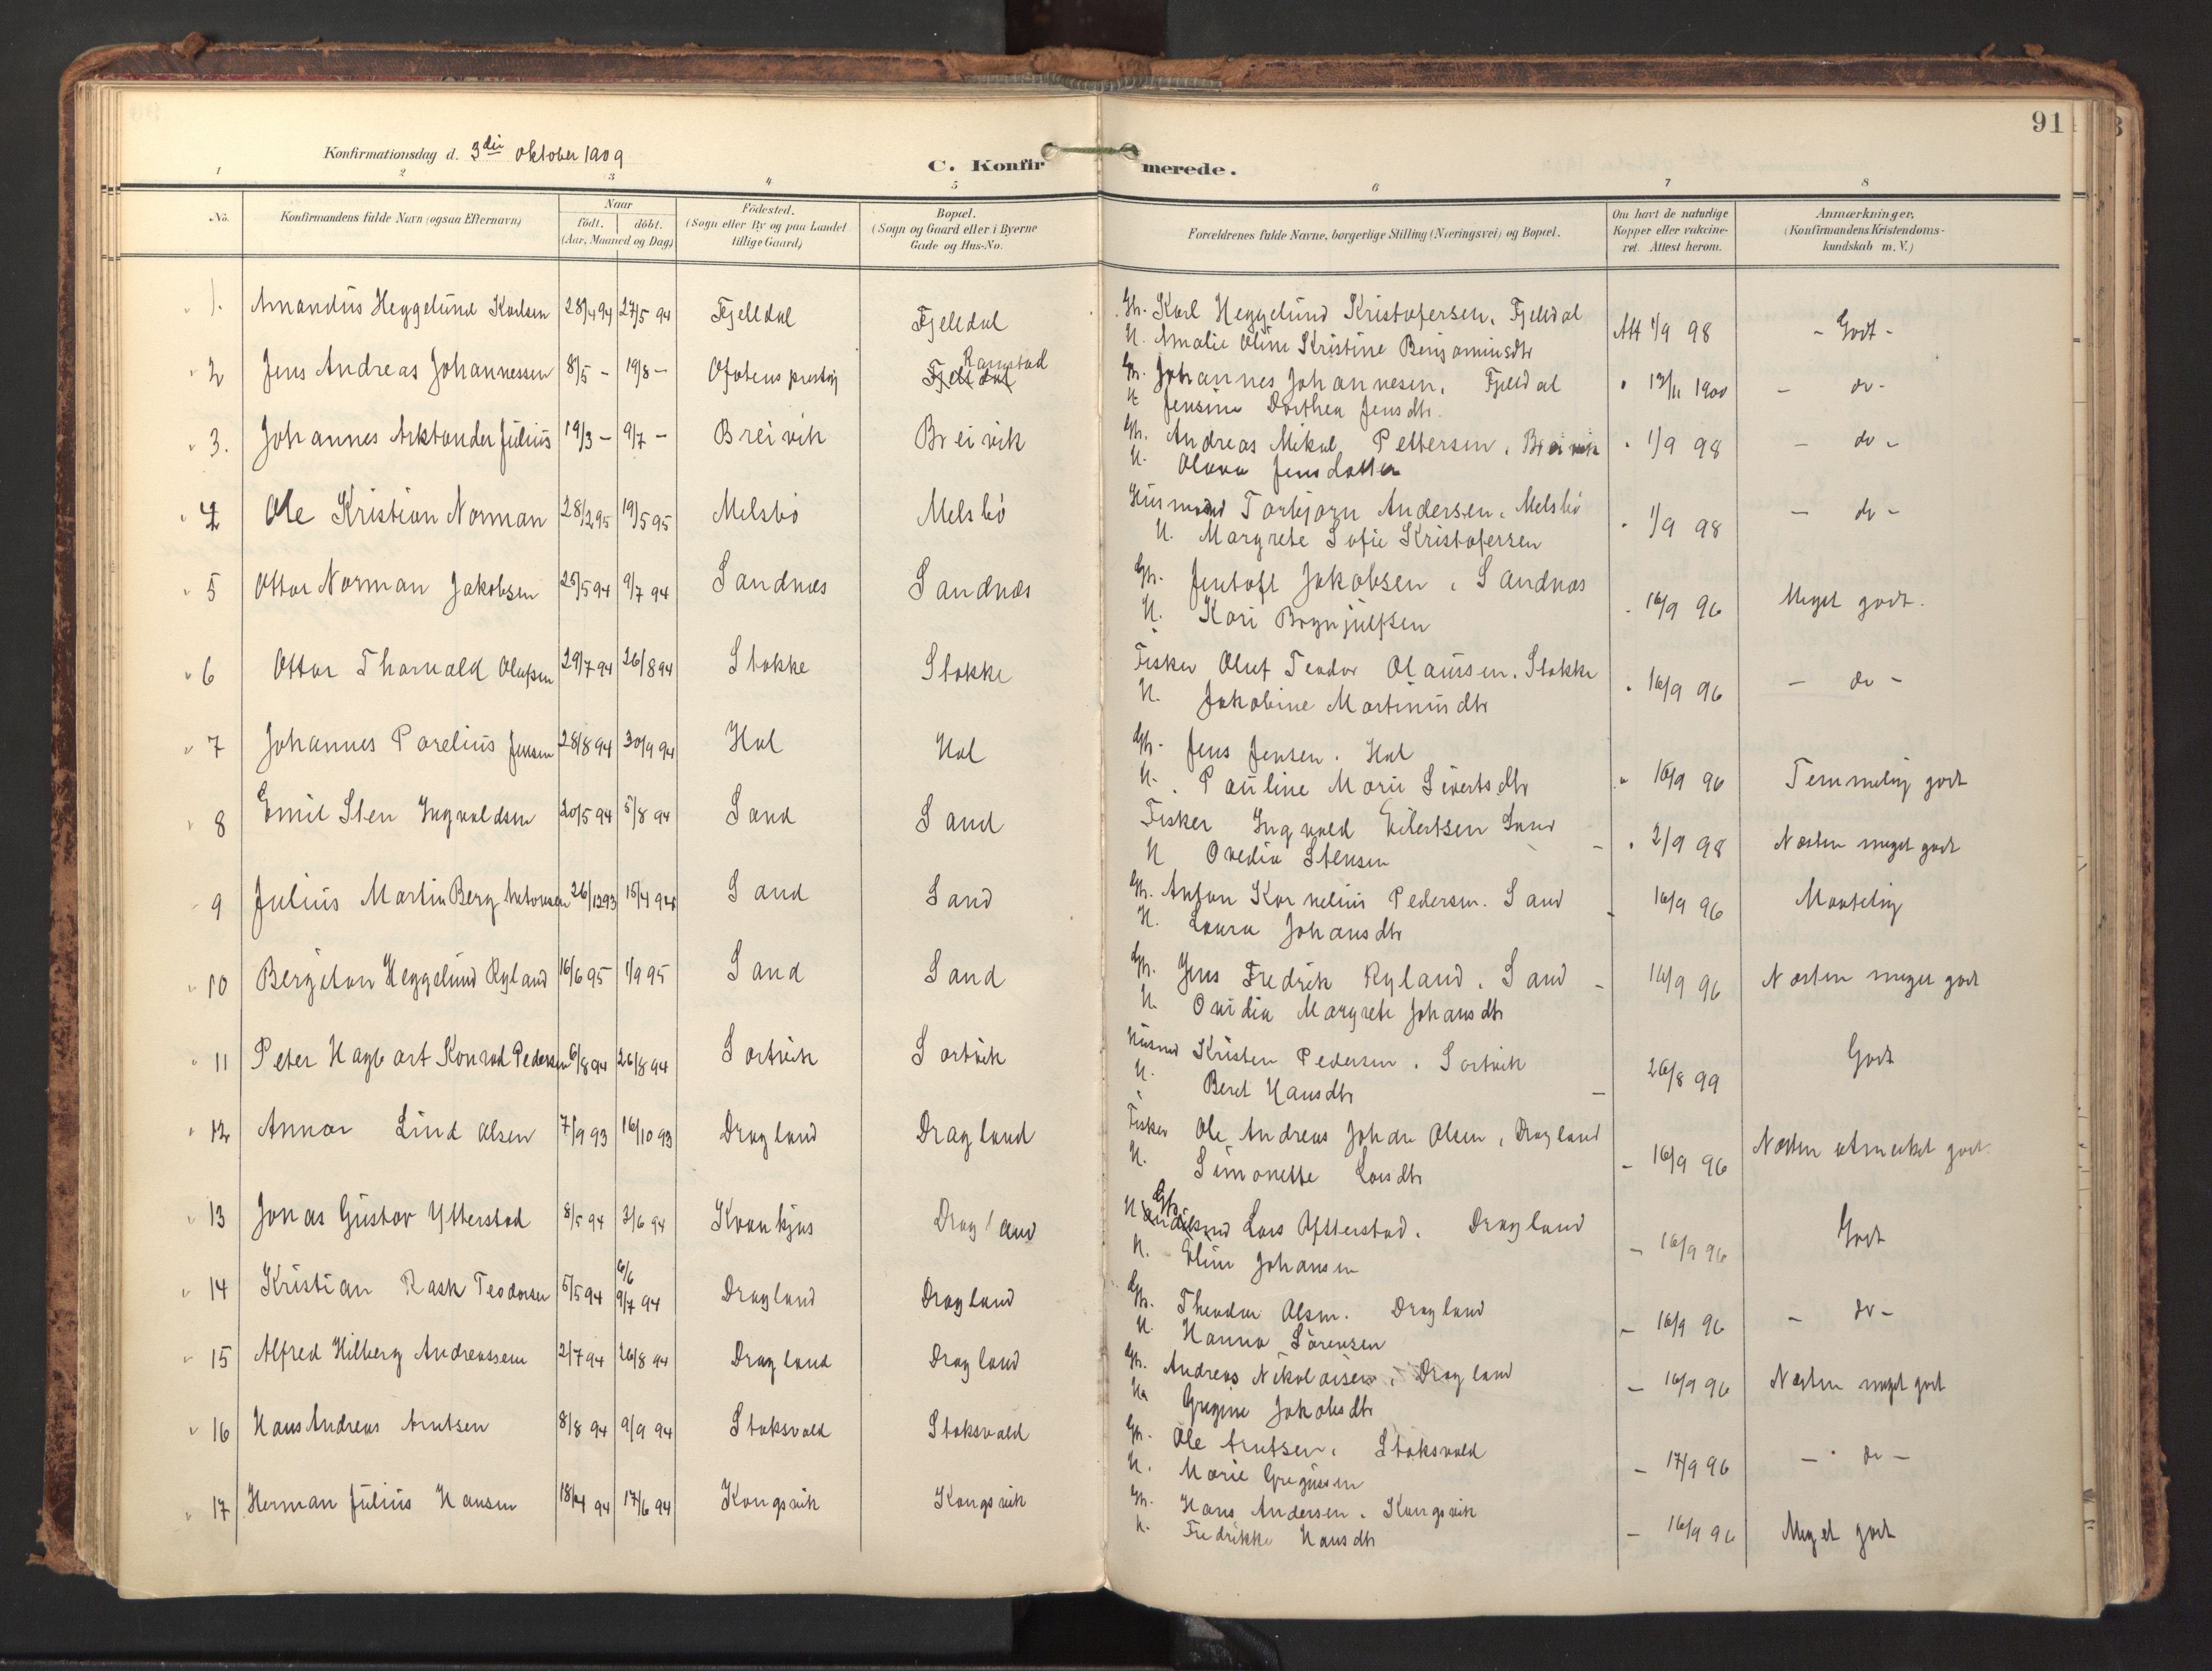 91
Konfirmationsdag d. 3die Oktober 1909
C. Konfirmerede.
1 2 3 4 5 6 7 8
No. Konfirmandens fulde Navn (ogsaa Efternavn) Naar födt. döbt. (Aar, Maaned og Dag) Födested. (Sogn eller By og paa Landet tillige Gaard) Bopæl. (Sogn og Gaard eller i Byerne Gade og Hus-No. Forældrenes fulde Navne, borgerlige Stilling (Næringsvei) og Bopæl. Om havt de naturlige Kopper eller vakcineret. Attest herom. Anmærkninger. (Konfirmandens Kristendomskundskab m. V.)
1. Amandus Heggelund Karlsen 28/4 94 27/5 94 Fjelldal Fjelldal Gbr. Karl Heggelund Kristofersen. Fjelldal Att 1/9 98 - Godt -
H. Amalie Oline Kristine Benjaminsdtr
2 Jens Andreas Johannessen 8/5 - 19/8 - Ofotens prestgj Fjelldal Ramstad Gbr. Johannes Johannesen. Fjelldal " 13/11 1900 - do -
H Jensine Dorthea Jensdtr.
3. Johannes Arktander Julius 19/3 - 9/7 - Breivik Breivik Gbr. Andreas Mikal Pettersen. Breivik " 1/9 98 - do -
H. Olava Jensdatter
4 Ole Kristian Norman 28/2 95 19/5 95 Melsbö Melsbö Husmand Torbjorn Andersen. Melsbö " 1/9 98 - do -
H. Margrete Sofie Kristofersen
5 Ottar Norman Jakobsen 25/5 94 9/7 94 Sandnæs Sandnæs Gbr. Jentoft Jakobsen. Sandnæs - 16/9 96 Meget godt.
H. Kari Brynjulfsen
6 Ottar Thorvald Olufsen 29/7 94 26/8 94 Stokke Stokke Fisker Oluf Teodor Olaussen. Stokke " 16/9 96 - do -
H. Jakobine Martinusdtr
7 Johannes Parelius Jensen 28/8 94 30/9 94 Hol Hol Gbr. Jens Jensen. Hol " 16/9 96 Temmelig godt
H. Pauline Marie Sivertsdtr
8 Emil Sten Ingvaldsen 20/5 94 5/8 94 Sand Sand Fisker Ingvald Eilertsen Sand - " 2/9 98 Næsten meget godt
H Ovedia Stensen
9 Julius Martin Berg Antonsen 26/12 93 15/4 94 Sand Sand Gbr. Anton Kornelius Pedersen. Sand - 16/9 96 Maatelig
H. Laura Johansdtr
10 Bergiton Heggelund Ryland 16/6 95 1/9 95 Sand Sand Gbr. Jens Fredrik Ryland. Sand - 16/9 96 Næsten meget godt
H. Ovidia Margrete Johansdtr
11 Peter Hagbart Konrad Pedersen 6/8 94 26/8 94 Sortvik Sortvik Husmd Kristen Pedersen. Sortvik - 26/8 99 Godt
H. Beret Hansdtr
12 Annar Lind Olsen 7/9 93 16/10 93 Dragland Dragland Fisker Ole Andreas Johan Olsen. Dragland - 16/9 96 Næsten utmerket godt.
H. Simonette Larsdtr
13 Jonas Gustav Ytterstad 8/5 94 3/6 94 Kvankjos Dragland Gbr. Lars Ytterstad. Dragland - 16/9 96 Godt
H. Eline Johansen
14 Kristian Rask Teodorsen 5/5 94 6/6 9/7 94 Dragland Dragland Gbr. Theodor Olsen. Dragland - 16/9 96 - do -
H. Hanna Sörensen
15 Alfred Hilberg Andreassen 2/7 94 26/8 94 Dragland Dragland Gbr. Andreas Nikolaisen. Dragland - 16/9 96 Næsten meget godt
H. Gregine Jakobsdtr
16 Hans Andreas Arntsen 8/8 94 9/9 94 Stoksvold Stoksvold Gbr. Ole Arntsen. Stoksvold - 17/9 96 - do -
H. Marie Gregussen
17 Herman Julius Hansen 18/4 94 17/6 94 Kongsvik Kongsvik Gbr. Hans Andersen. Kongsvik - 16/9 96 Meget godt
H. Fredrikke Hansdtr